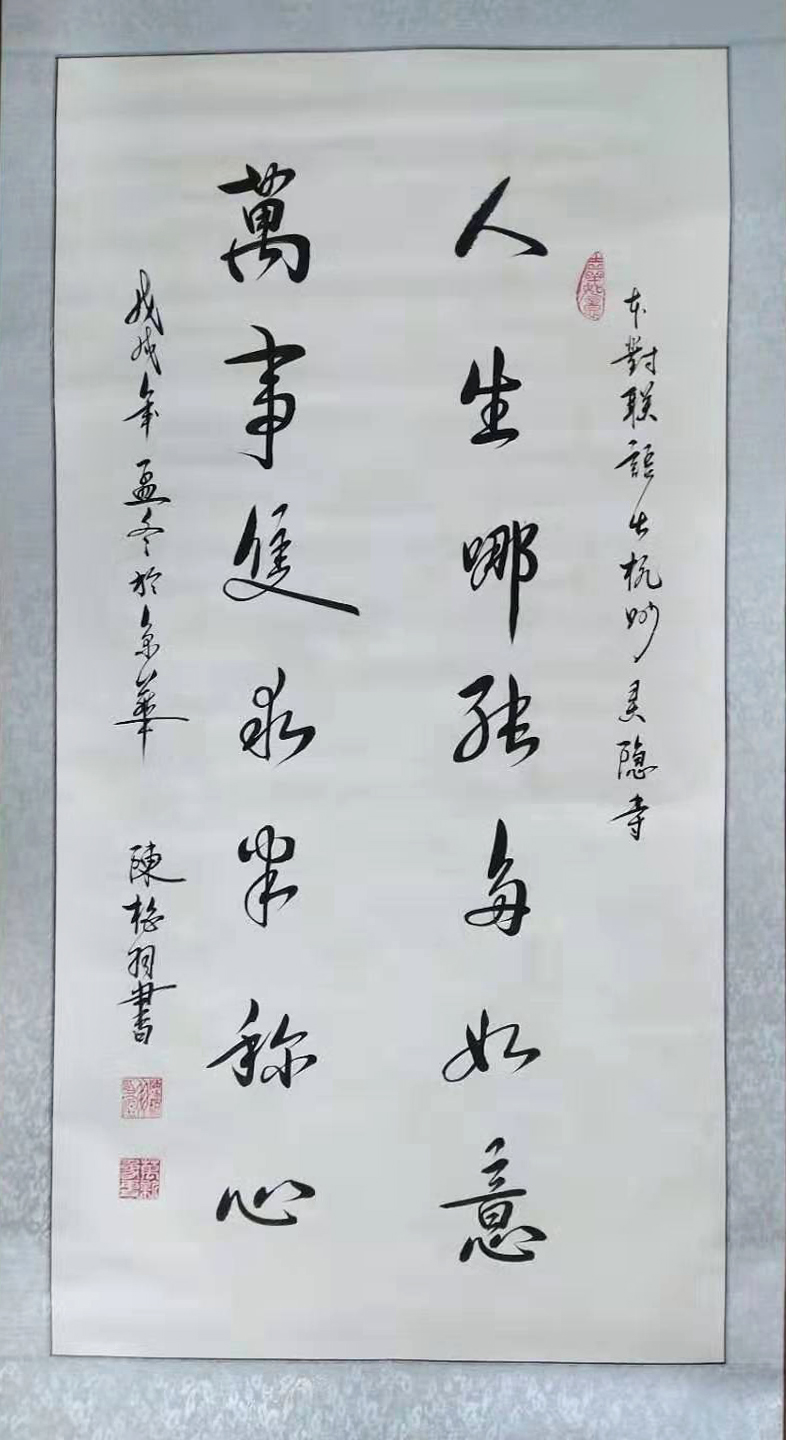 本對联語出杭州灵隐寺
人生哪能多如意
萬事隻求半称心
戊戌年孟冬於京華
陳 書